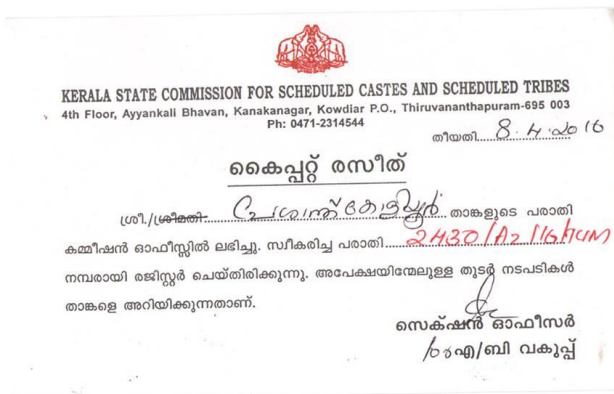 KERALA STATE COMMISSION FOR SCHEDULED CASTES AND SCHEDULED TRIBES
4th Floor, Ayyankali Bhavan, Kanakanagar, Kowdiar P.O., Thiruvananthapuram-695 003
Ph: 0471-2314544
തീയതി 8.4.2016
കൈപ്പറ്റ് രസീത്
ശ്രീ./ശ്രീമതി താങ്കളുടെ പരാതി
കമ്മീഷൻ ഓഫീസ്സിൽ ലഭിച്ചു. സ്വീകരിച്ച പരാതി 2430/A2/16/KUM
നമ്പരായി രജിസ്റ്റർ ചെയ്തിരിക്കുന്നു. അപേക്ഷയിന്മേലുള്ള തുടർ നടപടികൾ
താങ്കളെ അറിയിക്കുന്നതാണ്.
സെക്ഷൻ ഓഫീസർ
എ/ബി വകുപ്പ്